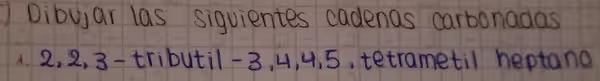 ) Dibujar las siguientes cadenas carbonadas
1. 2,2,3-tributil-3,4,4,5, tetrametil heptano